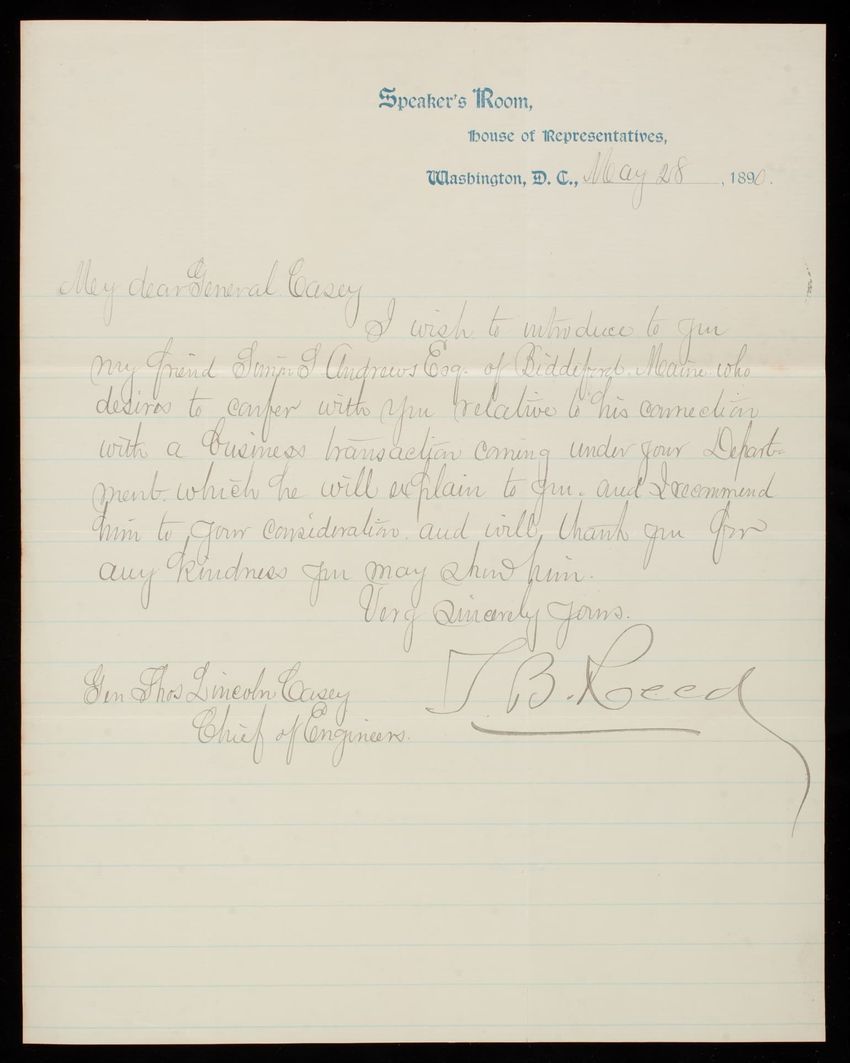 Speaker's Room,
House of Representatives,
Washington, D. C., May 28, 1890.
My dear General Casey
I wish to introduce to you
my friend S Andrews Esq. of Biddeford. Maine who
desires to confer with you relative to his connection
with a business transaction coming under your Depart-
ment. which he will explain to you. and I recommend
him to your consideration. and will, thank you for
any kindness you may show him.
Very Sincerely yours.
T B. Reed
Gen Thos Lincoln Casey
Chief of Engineers.